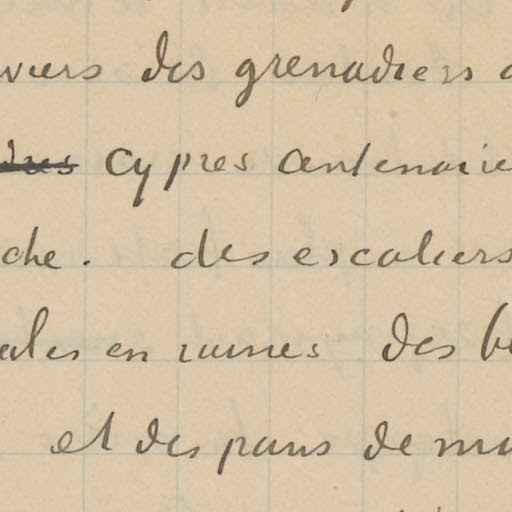 viers des grenadiers
cypres centenaire
che. des escaliers
ales en ruines des b
et des pans de mu